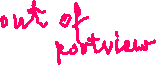 out of
portview